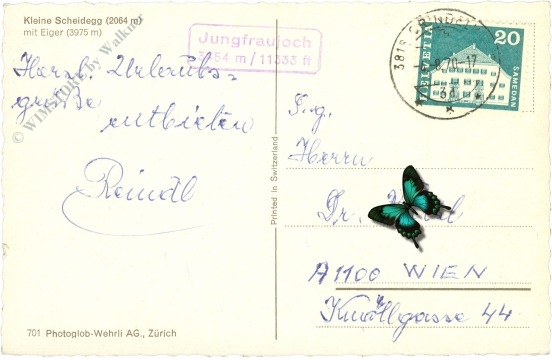 Kleine Scheidegg (2064 m)
mit Eiger (3975 m)
© WIMSTORE by Walkner
Jungfraujoch
3454 m / 11333 ft
HELVETIA
20
SAMEDAN
3818 GRINDEL
8.70-17
Herzl. Urlaubs-
grüße
entbieten
Reindl
Printed in Switzerland
S.g.
Herrn
Dr.
A 1100 WIEN
Knöllgasse 44
701 Photoglob-Wehrli AG., Zürich